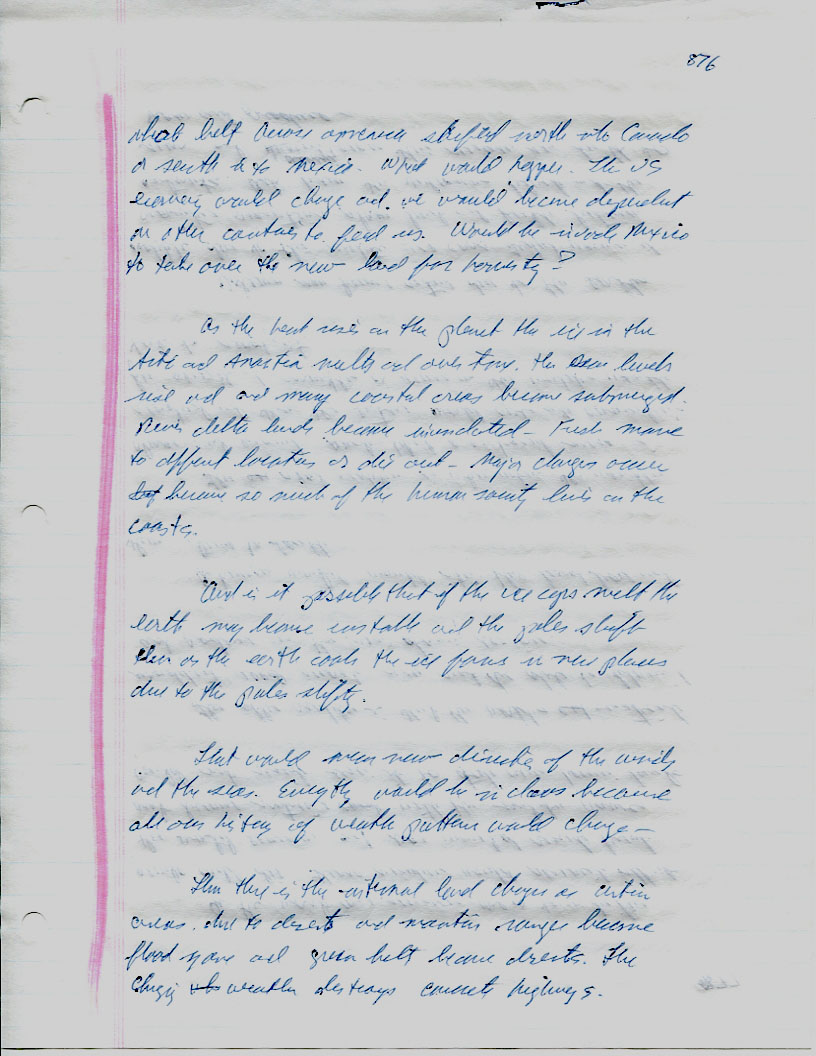 876
wheat belt across america shifted north into Canada
or south into Mexico. What would happen. The US
economy would change and we would become dependent
on other contries to feed us. Would be invade Mexico
to take over the new land for harvesting?
As the heat rises on the planet the ice in the
Artic and Anartica melts and over time. the levels
rise and and many coastal areas become submerged.
River delta lands become inundated - move
to different locations or die out - Major changes occur
because so much of the human society lives on the
coasts.
And is it possible that if the ice caps melt the
earth may become unstable and the poles shift
then as the earth cools the ice forms in new places
due to the poles shifting.
That would mean new direction of the winds
and the seas. Everything would be in chaos because
all our history of weather pattern would change -
Then there is the land changes as certain
areas. due to deserts and mountain ranges become
flood zone and green belt become deserts. The
changing weather destroys concrete highways.